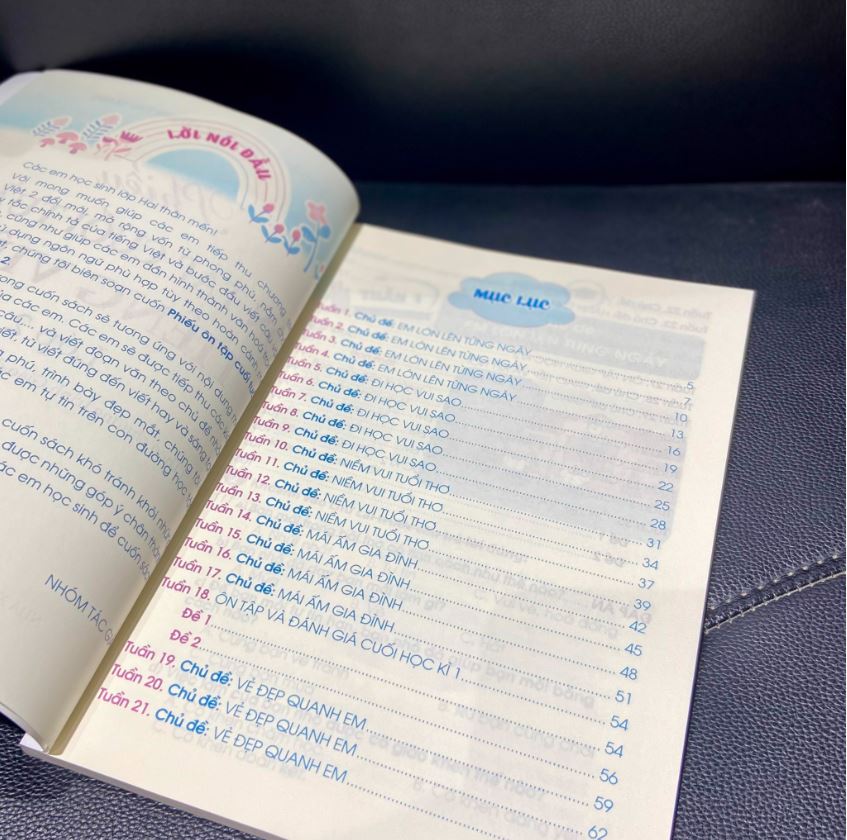 LỜI NÓI ĐẦU
Các em học sinh lớp Hai thân mến!
Với mong muốn giúp các em tiếp thu chương
Việt 2 đổi mới, mở rộng vốn từ phong phú, nắm
tắc chính tả của tiếng Việt và bước đầu viết câu
cũng như giúp các em dần hình thành văn hoá
dụng ngôn ngữ phù hợp tùy theo hoàn cảnh
chúng tôi biên soạn cuốn Phiếu ôn tập cuối
2.
ong cuốn sách sẽ tương ứng với nội dung
ủa các em. Các em sẽ được tiếp thu các
câu.... và viết đoạn văn theo chủ đề
iết, từ viết đúng đến viết hay và sáng
phú, trình bày đẹp mắt, chúng tôi
ác em tự tin trên con đường học
cuốn sách khó tránh khỏi
được những góp ý chân
ác em học sinh để cuốn
NHÓM TÁC
MỤC LỤC
Tuần 1. Chủ đề: EM LỚN LÊN TỪNG NGÀY 5
Tuần 2. Chủ đề: EM LỚN LÊN TỪNG NGÀY 7
Tuần 3. Chủ đề: EM LỚN LÊN TỪNG NGÀY 10
Tuần 4. Chủ đề: EM LỚN LÊN TỪNG NGÀY 13
Tuần 5. Chủ đề: ĐI HỌC VUI SAO 16
Tuần 6. Chủ đề: ĐI HỌC VUI SAO 19
Tuần 7. Chủ đề: ĐI HỌC VUI SAO 22
Tuần 8. Chủ đề: ĐI HỌC VUI SAO 25
Tuần 10. Chủ đề: NIỀM VUI TUỔI THƠ 28
Tuần 11. Chủ đề: NIỀM VUI TUỔI THƠ 31
Tuần 12. Chủ đề: NIỀM VUI TUỔI THƠ 34
Tuần 13. Chủ đề: NIỀM VUI TUỔI THƠ 37
Tuần 14. Chủ đề: MÁI ẤM GIA ĐÌNH 39
Tuần 15. Chủ đề: MÁI ẤM GIA ĐÌNH 42
Tuần 16. Chủ đề: MÁI ẤM GIA ĐÌNH 45
Tuần 17. Chủ đề: MÁI ẤM GIA ĐÌNH 48
Tuần 18. ÔN TẬP VÀ ĐÁNH GIÁ CUỐI HỌC KÌ 1 51
Đề 1 54
Đề 2 54
Tuần 19. Chủ đề: VẺ ĐẸP QUANH EM 56
Tuần 20. Chủ đề: VẺ ĐẸP QUANH EM 59
Tuần 21. Chủ đề: VẺ ĐẸP QUANH EM 62